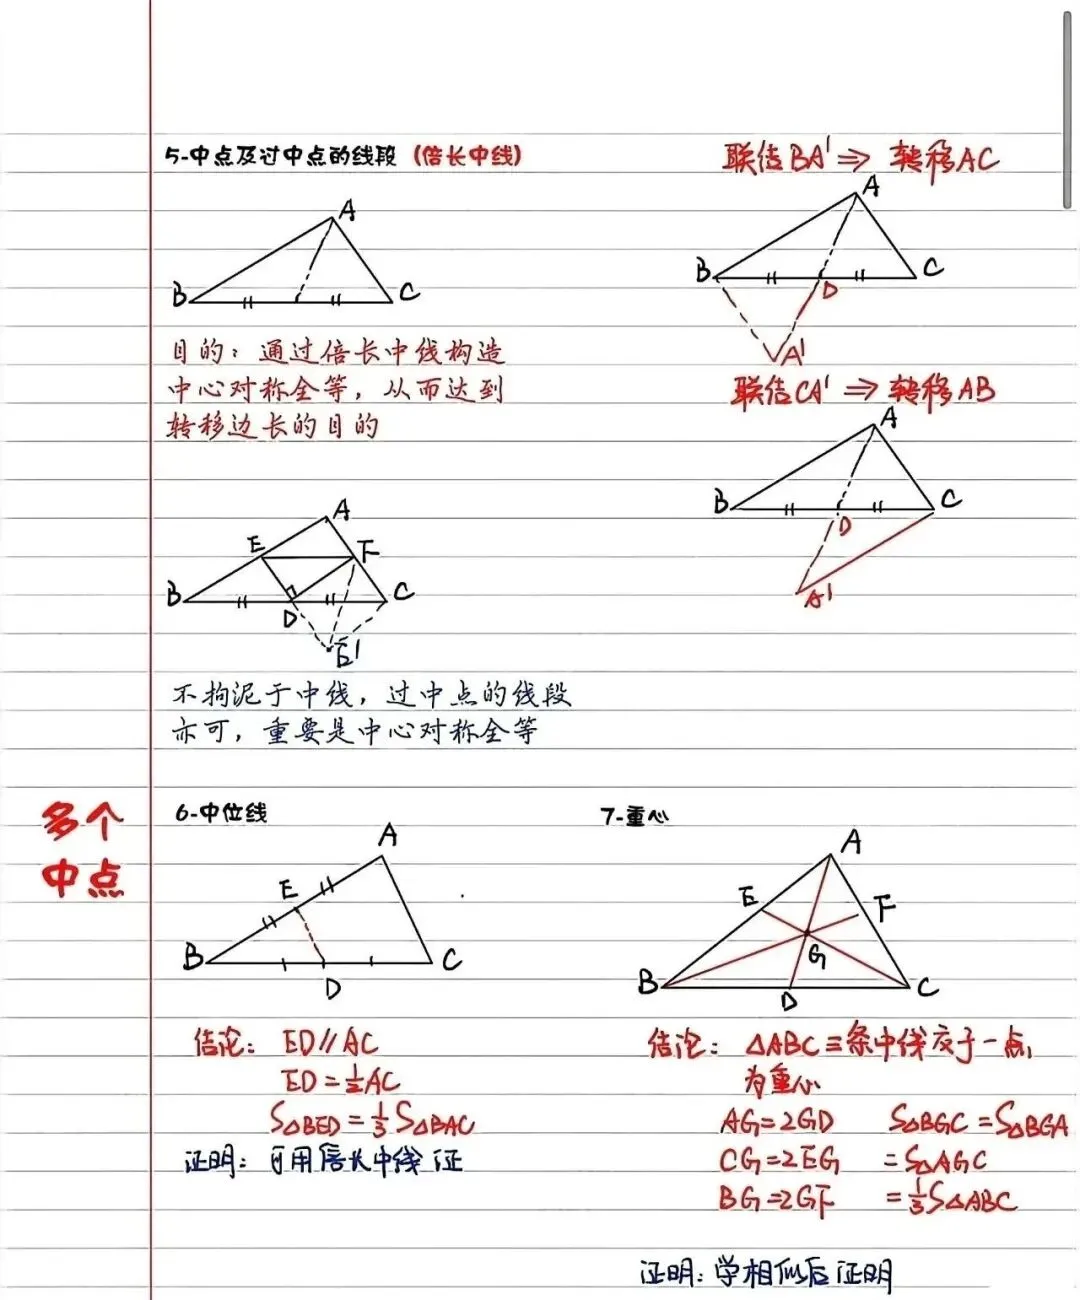 5-中点及过中点的线段（倍长中线）
A
B
C
目的：通过倍长中线构造
中心对称全等，从而达到
转移边长的目的
联结BA'⇒转移AC
A
B
D
C
A'
联结CA'⇒转移AB
A
B
D
C
A'
A
E
F
B
D
C
E'
不拘泥于中线，过中点的线段
亦可，重要是中心对称全等
多个
中点
6-中位线
A
E
B
D
C
结论：ED∥AC
ED=½AC
S△BED=⅓S△BAC
证明：可用倍长中线证
7-重心
A
E
F
G
B
D
C
结论：△ABC三条中线交于一点，
为重心
AG=2GD S△BGC=S△BGA
CG=2EG =S△AGC
BG=2GF =⅓S△ABC
证明：学相似后证明